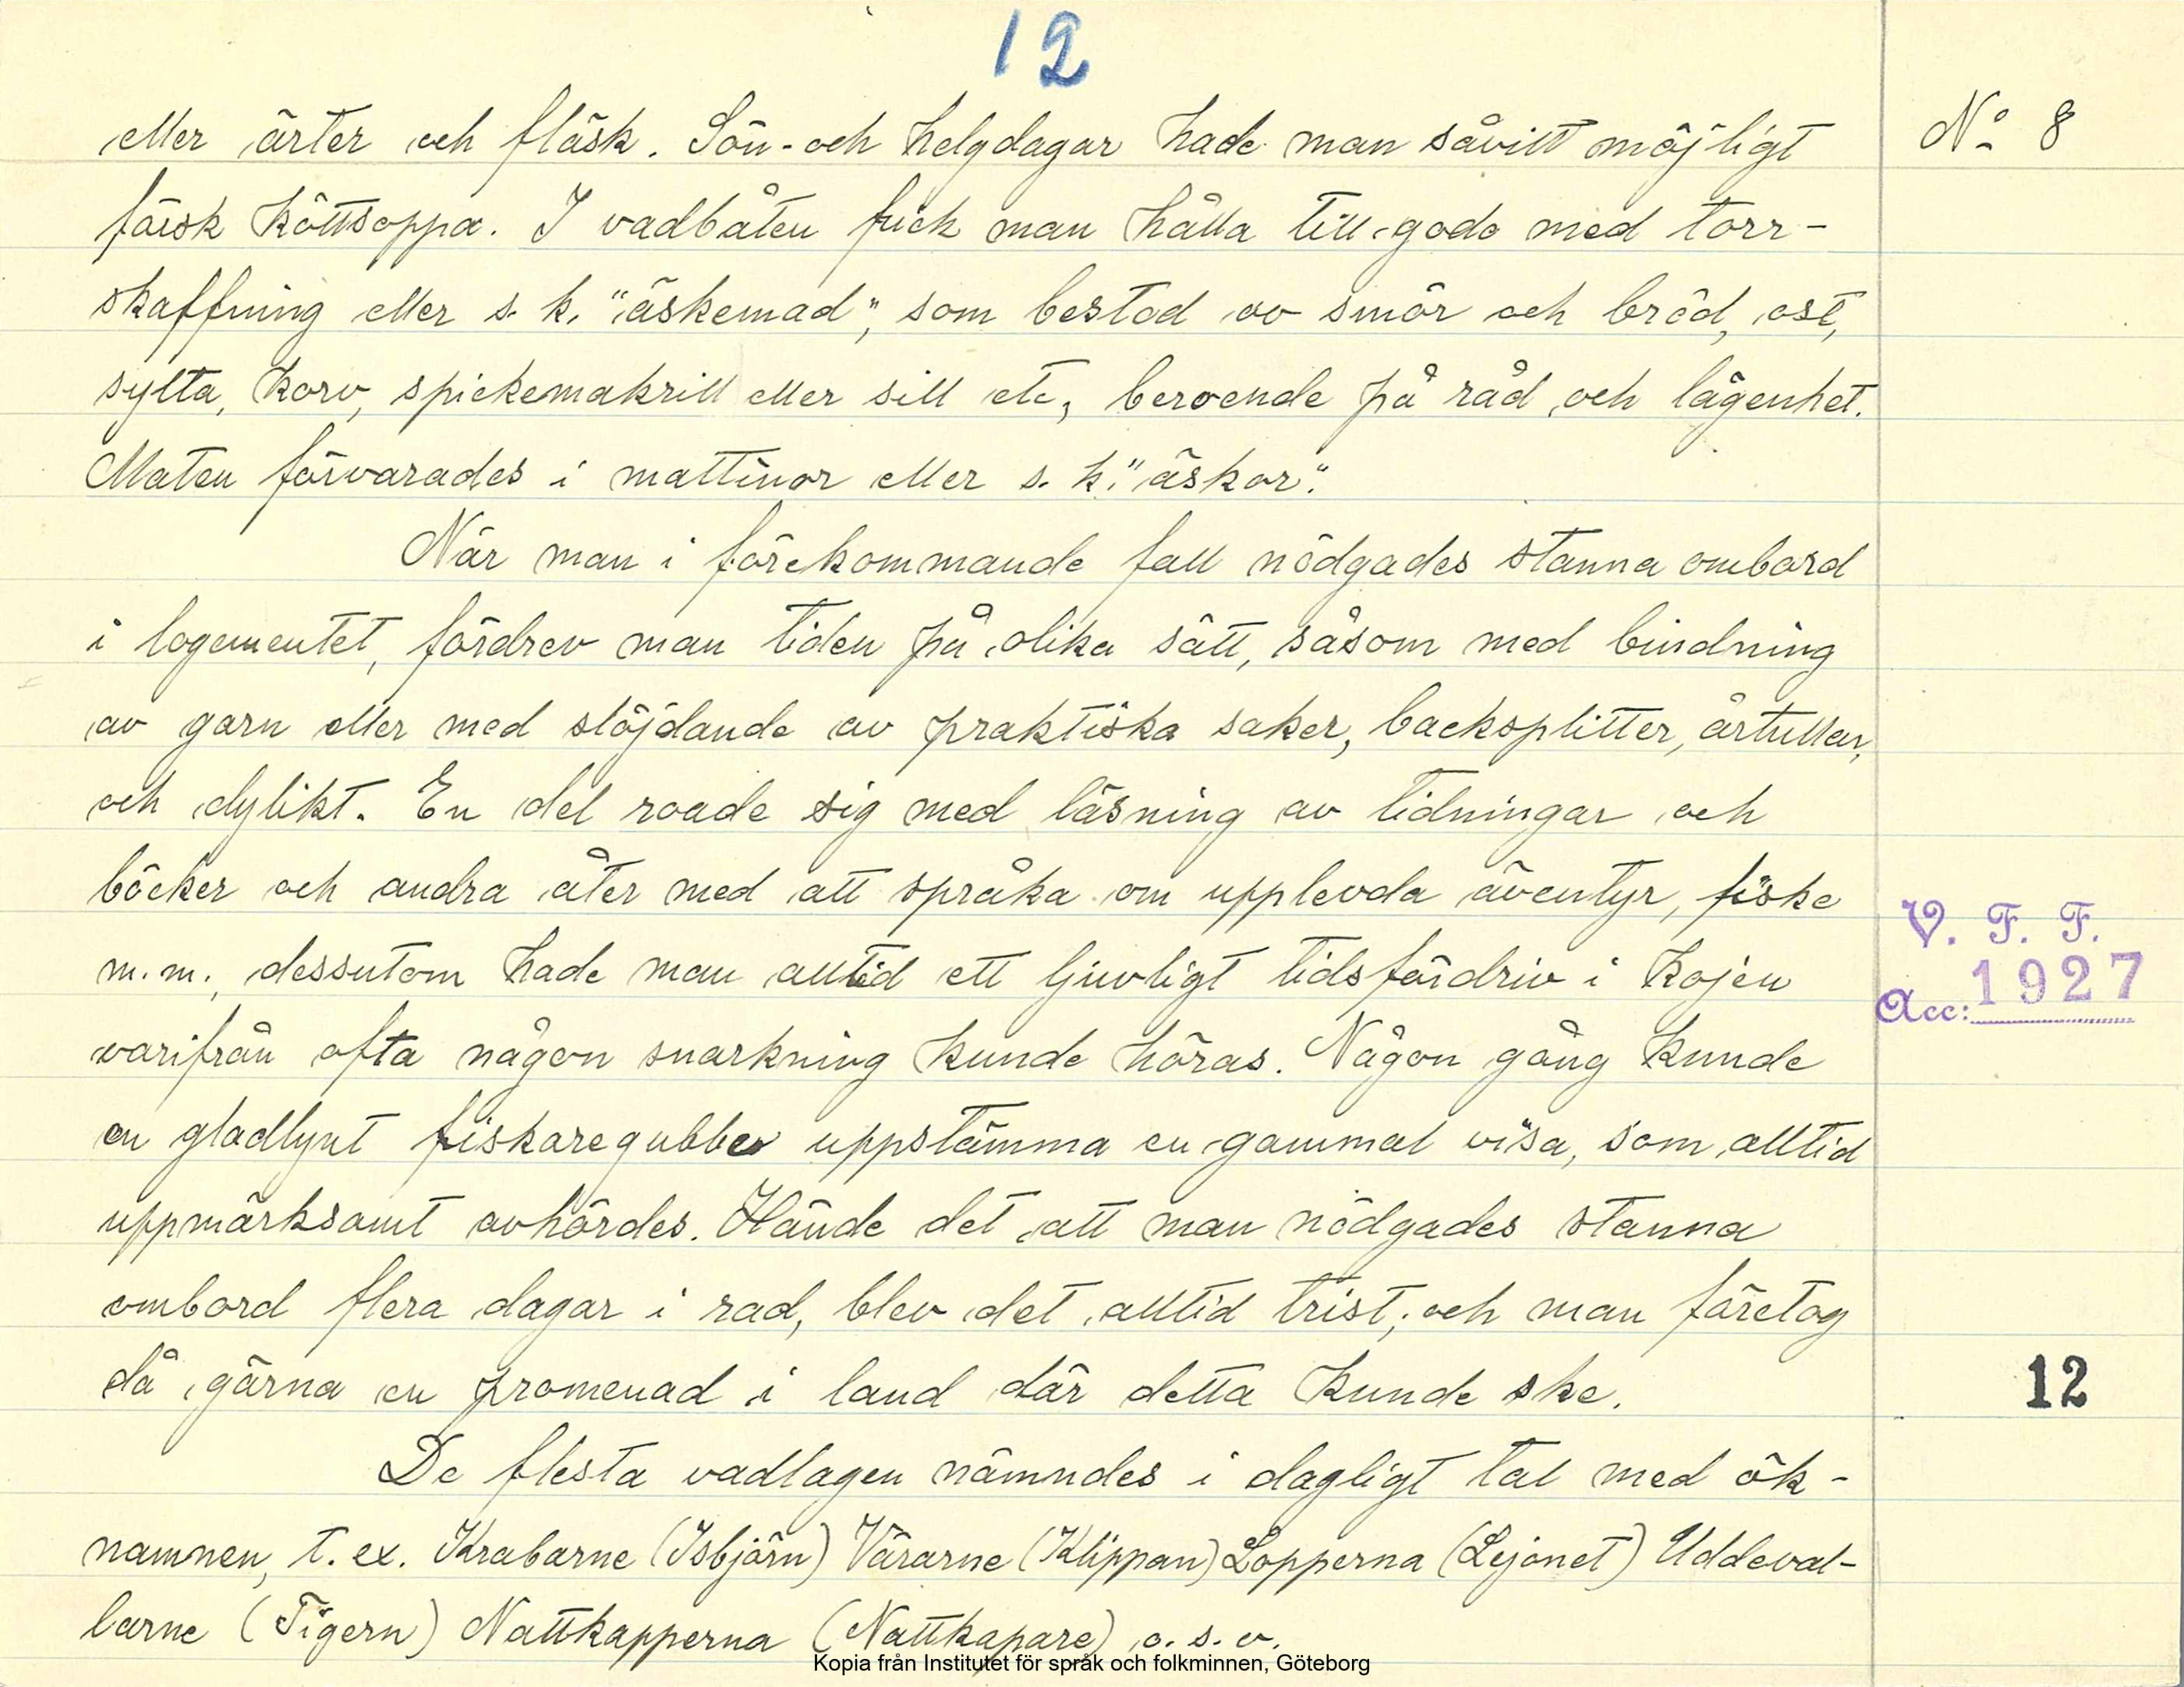 12
eller ärter och fläsk. Sön- och helgdagar hade man såvitt möjligt
färsk köttsoppa. I vadbåten fick man hålla till godo med torr-
skaffning eller s. k. "äskemad", som bestod av smör och bröd, ost,
sylta, korv, spickemakrill eller sill etc, beroende på råd och lägenhet.
Maten förvarades i mattinor eller s. k. "äskor".
När man i förekommande fall nödgades stanna ombord
i logementet, fördrev man tiden på olika sätt, såsom med bindning
av garn eller med slöjdande av praktiska saker, backsplitter, årtullar,
och dylikt. En del roade sig med läsning av tidningar och
böcker och andra åter med att språka om upplevda äventyr, fiske
m.m., dessutom hade man alltid ett ljuvligt tidsfördriv i kojen
varifrån ofta någon snarkning kunde höras. Någon gång kunde
en gladlynt fiskaregubbe uppstämma en gammal visa, som alltid
uppmärksamt avhördes. Hände det att man nödgades stanna
ombord flera dagar i rad, blev det alltid trist, och man företog
då gärna en promenad i land där detta kunde ske.
De flesta vadlagen nämndes i dagligt tal med ök-
namnen, t. ex. Krabarne (Isbjörn) Vårarne (Klippan) Lopperna (Lejonet) Uddeval-
larne (Tigern) Nattkapperna (Nattkapare) o. s. v.
Nº 8
V. F. F.
Acc: 1927
12
Kopia från Institutet för språk och folkminnen, Göteborg